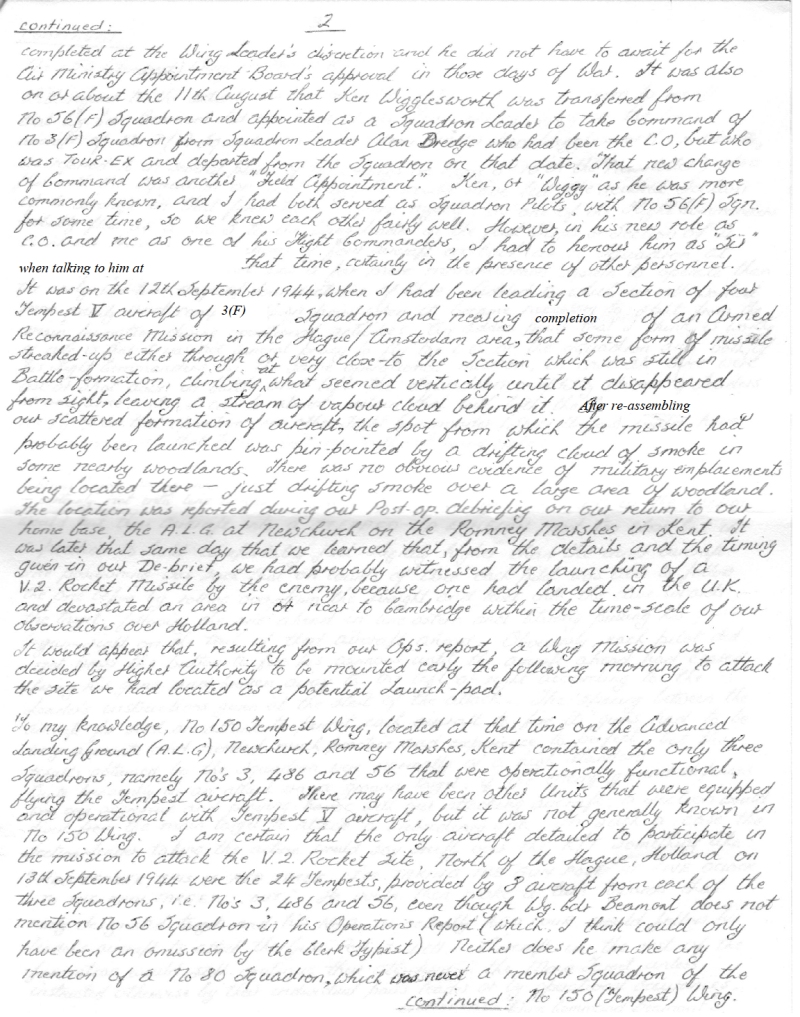 continued: 2
completed at the Wing Leader's discretion and he did not have to await for the
Air Ministry Appointment Board's approval in those days of War. It was also
on or about the 11th August that Ken Wigglesworth was transferred from
No 56(F) Squadron and appointed as a Squadron Leader to take Command of
No 3(F) Squadron from Squadron Leader Alan Dredge who had been the C.O, but who
was TOUR-EX and departed from the Squadron on that date. That new change
of Command was another "Field Appointment". Ken, or "Wiggy" as he was more
commonly known, and I had both served as Squadron Pilots, with No 56(F) Sqn.
for some time, so we knew each other fairly well. However, in his new role as
C.O. and me as one of his Flight Commanders, I had to honour him as "Sir"
when talking to him at that time, certainly in the presence of other personnel.
It was on the 12th September 1944, when I had been leading a Section of four
Tempest V aircraft of 3(F) Squadron and nearing completion of an Armed
Reconnaissance Mission in the Hague/Amsterdam area, that some form of missile
streaked-up either through or very close-to the Section which was still in
Battle-formation, climbing, at what seemed vertically until it disappeared
from sight, leaving a stream of vapour cloud behind it. After re-assembling
our scattered formation of aircraft, the spot from which the missile had
probably been launched was pin-pointed by a drifting cloud of smoke in
some nearby woodlands. There was no obvious evidence of military emplacements
being located there – just drifting smoke over a large area of woodland.
The location was reported during our Post-op. debriefing on our return to our
home base, the A.L.G. at Newchurch on the Romney Marshes in Kent. It
was later that same day that we learned that, from the details and the timing
given in our De-brief, we had probably witnessed the launching of a
V.2. Rocket Missile by the enemy, because one had landed in the U.K.
and devastated an area in or near to Cambridge within the time-scale of our
observations over Holland.
It would appear that, resulting from our Ops. report, a Wing Mission was
decided by Higher Authority to be mounted early the following morning to attack
the site we had located as a potential Launch-pad.
To my knowledge, No 150 Tempest Wing, located at that time on the Advanced
Landing Ground (A.L.G), Newchurch, Romney Marshes, Kent contained the only three
Squadrons, namely No's 3, 486 and 56 that were operationally functional,
flying the Tempest aircraft. There may have been other Units that were equipped
and operational with Tempest V aircraft, but it was not generally known in
No 150 Wing. I am certain that the only aircraft detailed to participate in
the mission to attack the V.2 Rocket Site, North of the Hague, Holland on
13th September 1944 were the 24 Tempests, provided by 8 aircraft from each of the
three Squadrons, i.e. No's 3, 486 and 56, even though Wg. Cdr Beamont does not
mention No 56 Squadron in his Operations Report (which, I think could only
have been an omission by the Clerk Typist) Neither does he make any
mention of a No 80 Squadron, which was never a member Squadron of the
continued: No 150 (Tempest) Wing.